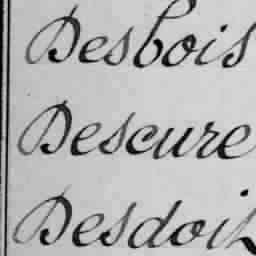 Desbois
Descure
Desdoit